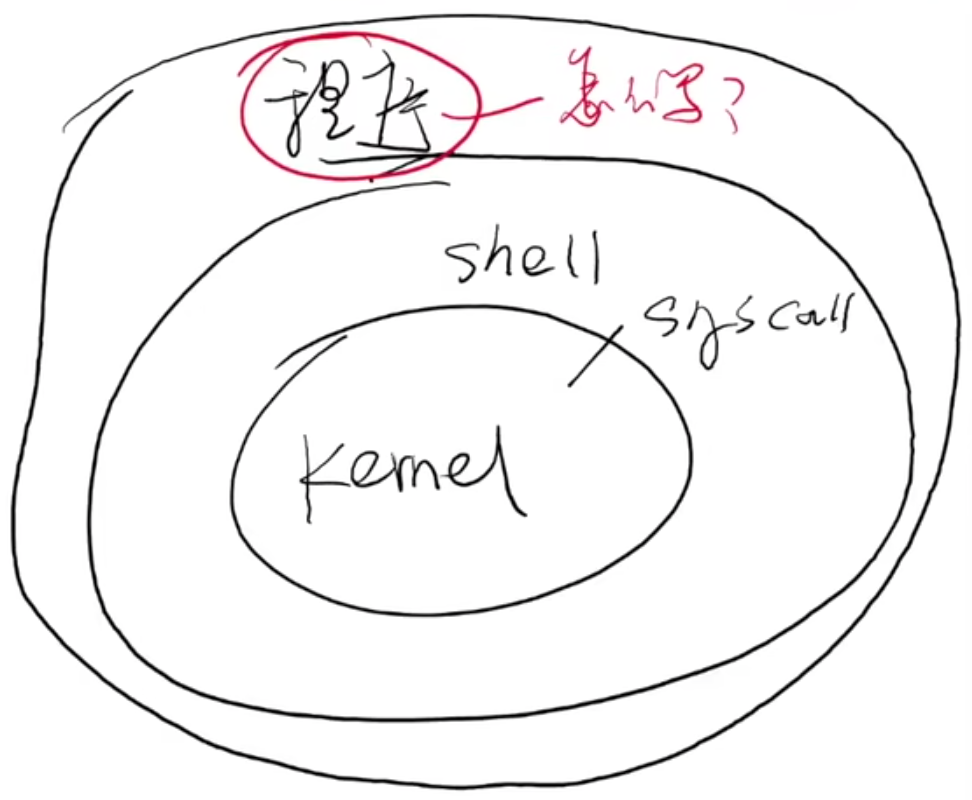 程序 怎么写?
shell
syscall
kernel